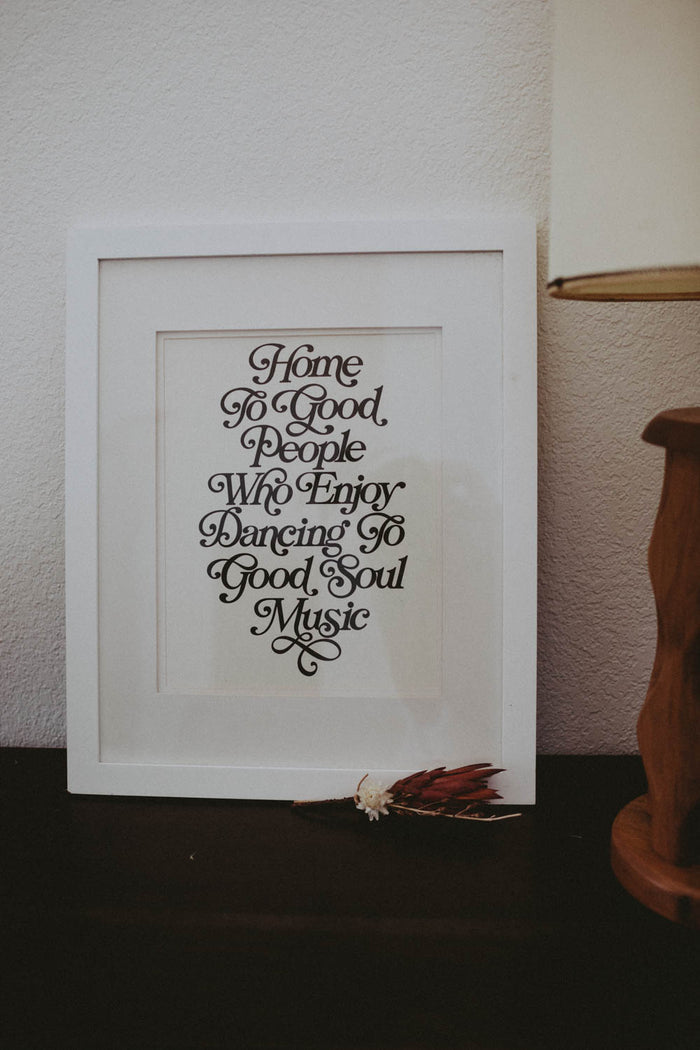 Home
To Good
People
Who Enjoy
Dancing To
Good Soul
Music